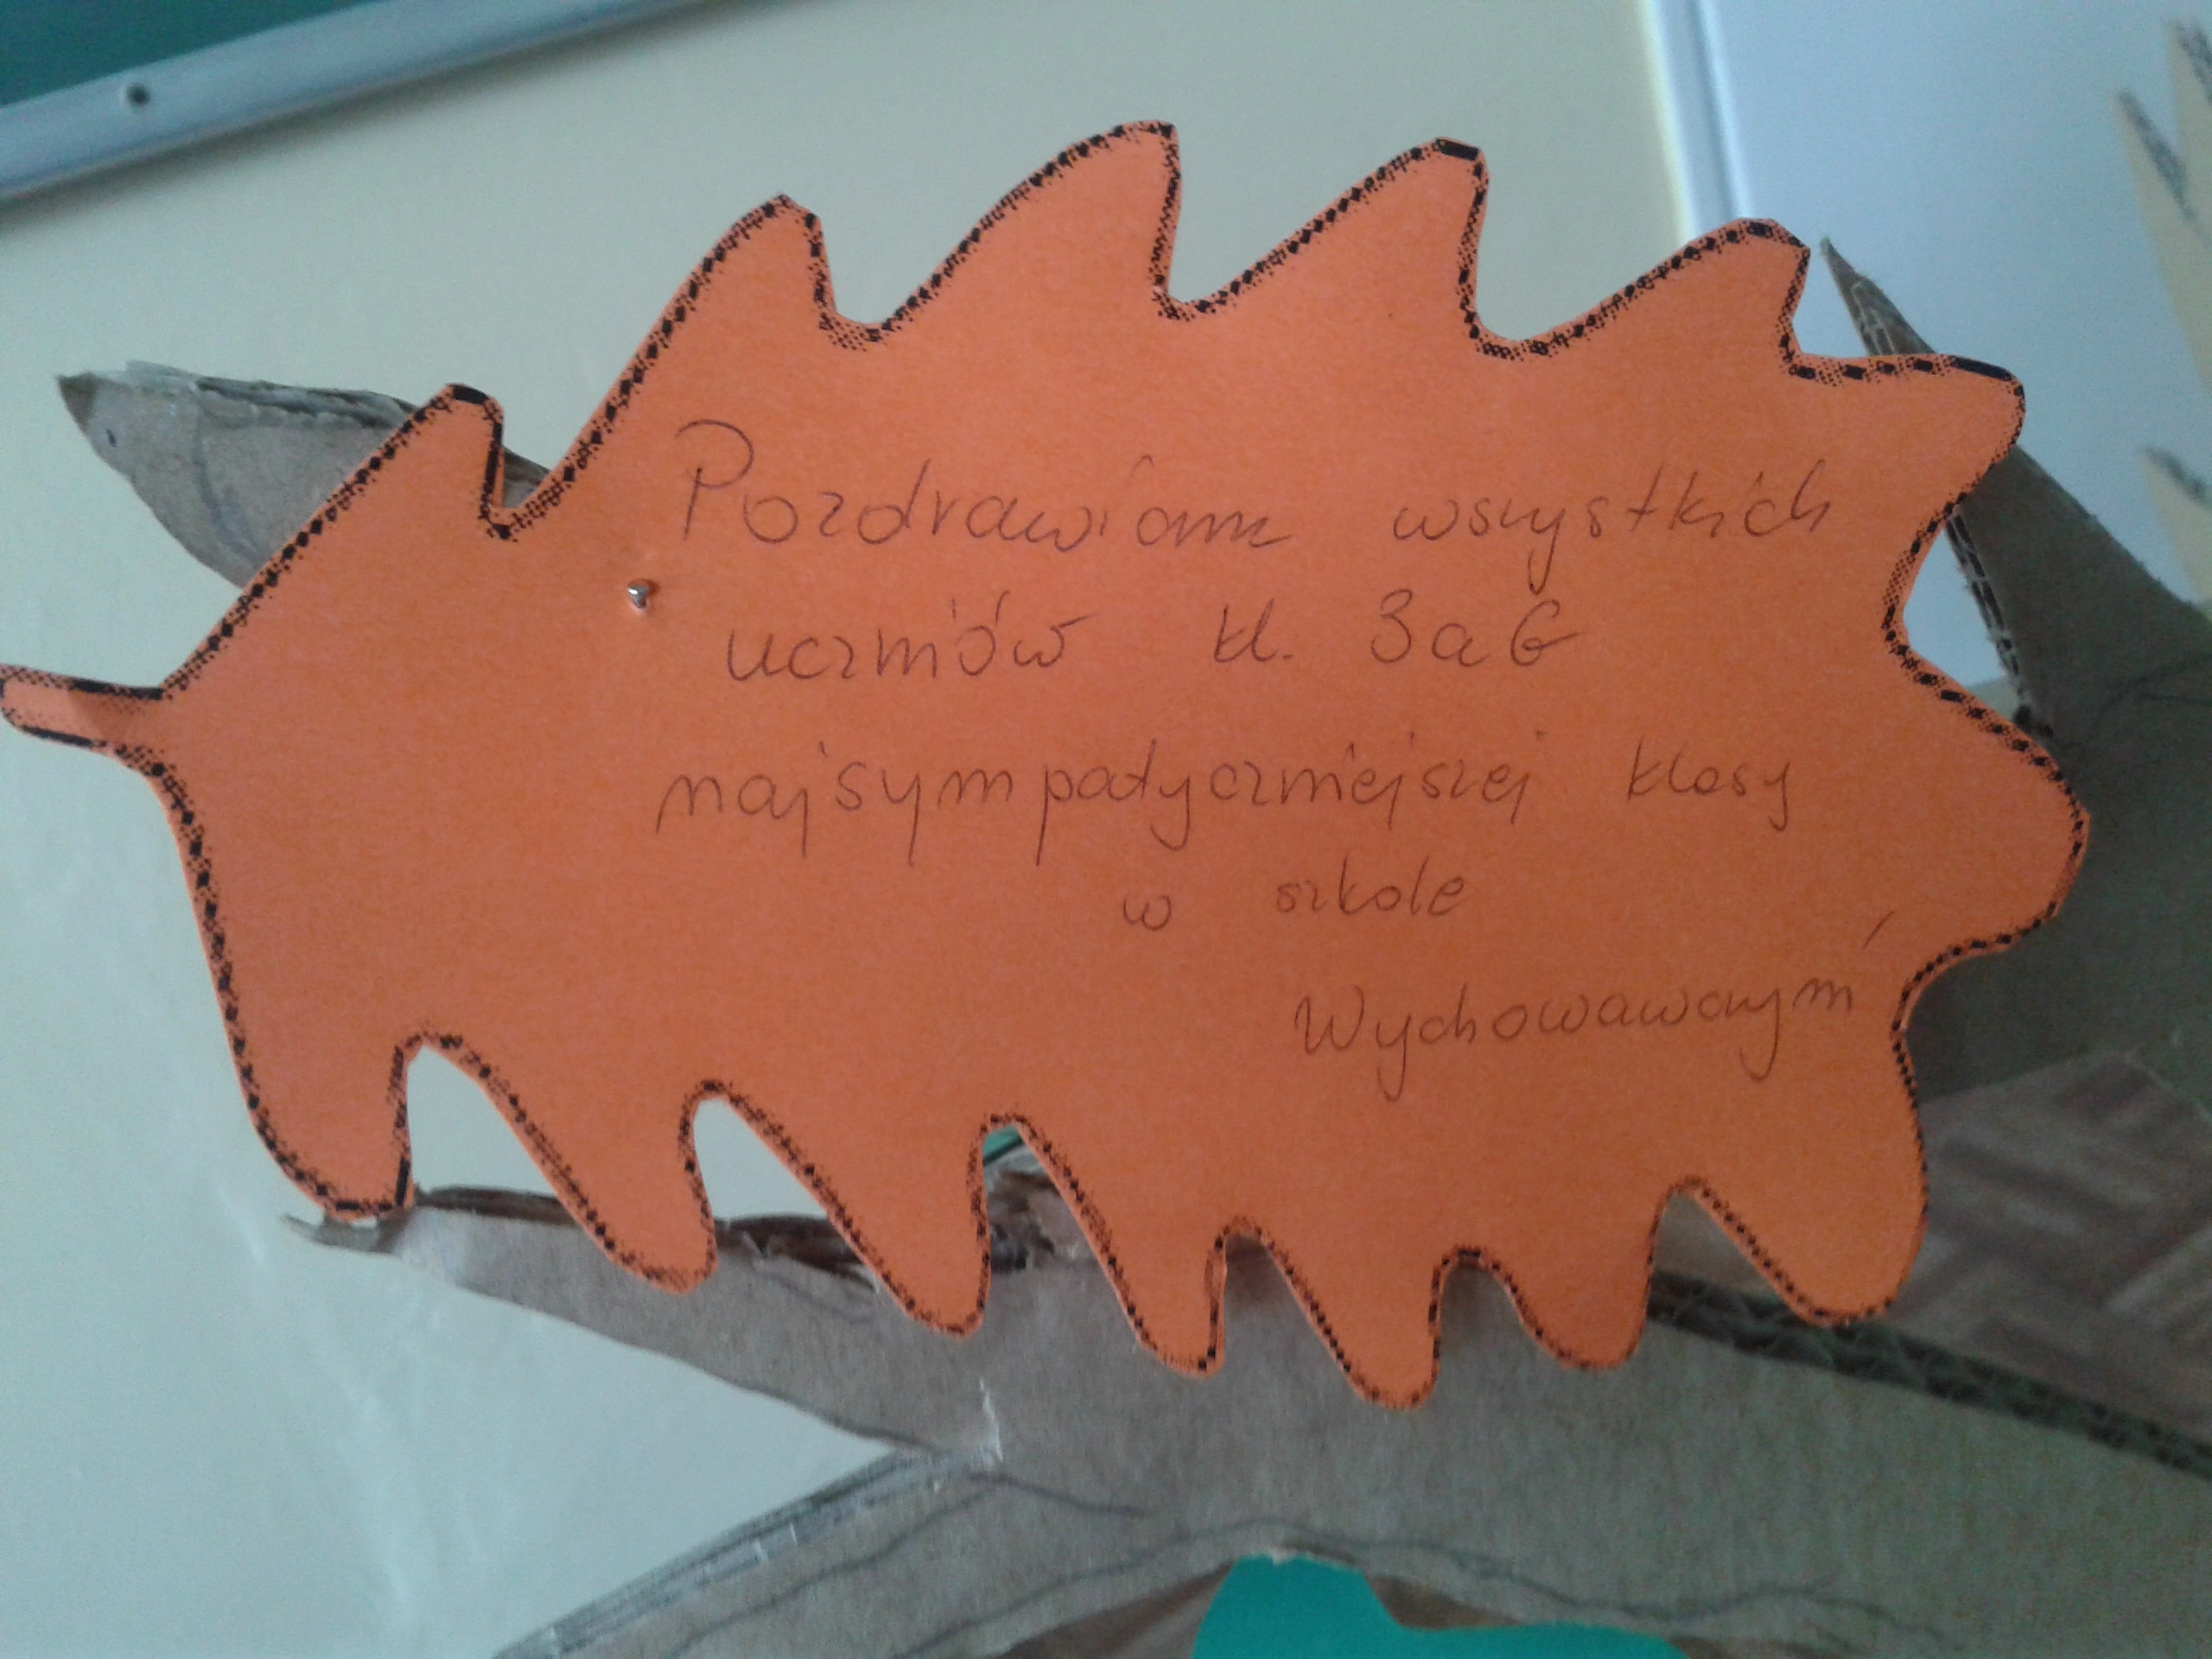 Pozdrawiam wszystkich
uczniów kl. 3aG
najsympatyczniejszej klasy
w szkole
Wychowawczyni